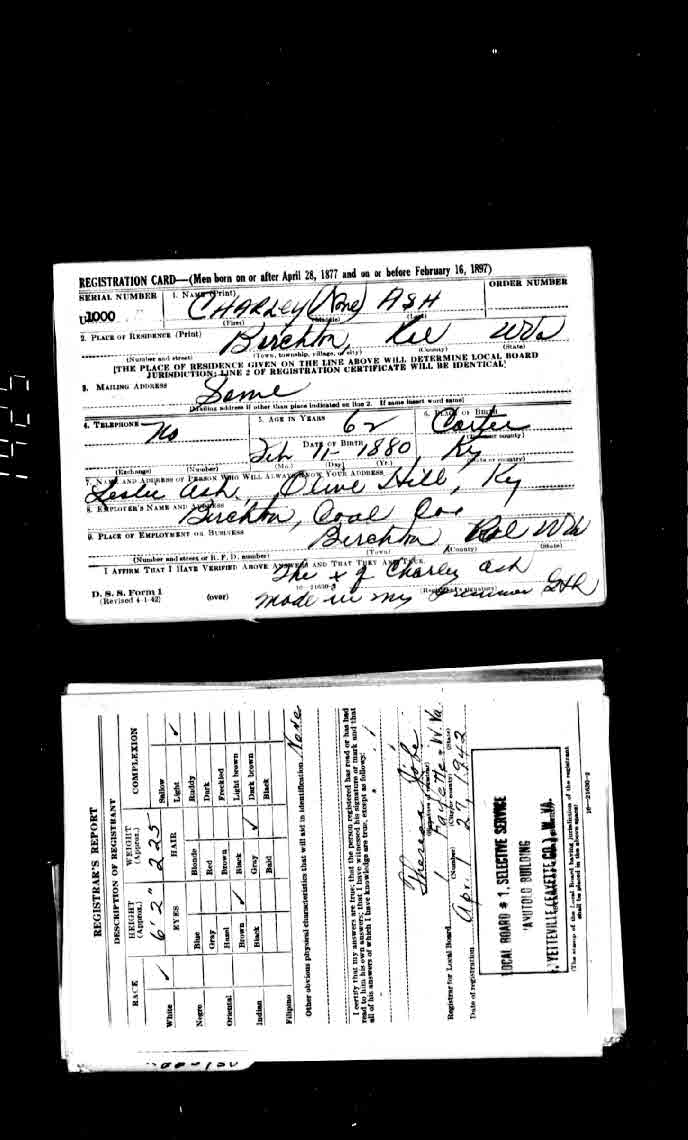 REGISTRATION CARD—(Men born on or after April 28, 1877 and on or before February 16, 1897)
SERIAL NUMBER 1. NAME (Print) ORDER NUMBER
U1000 CHARLEY (None) ASH
(First) (Middle) (Last)
2. PLACE OF RESIDENCE (Print)
Birchton, WVa
(Number and street) (Town, township, village, or city) (County) (State)
[THE PLACE OF RESIDENCE GIVEN ON THE LINE ABOVE WILL DETERMINE LOCAL BOARD
JURISDICTION; LINE 2 OF REGISTRATION CERTIFICATE WILL BE IDENTICAL]
3. MAILING ADDRESS
Same
[Mailing address if other than place indicated on line 2. If same insert word same]
4. TELEPHONE 5. AGE IN YEARS 6. PLACE OF BIRTH
No 62 Carter
(Town or county)
DATE OF BIRTH
Feb 11 1880 Ky
(Exchange) (Number) (Mo.) (Day) (Yr.) (State or country)
7. NAME AND ADDRESS OF PERSON WHO WILL ALWAYS KNOW YOUR ADDRESS
Leslie Ash, Olive Hill, Ky
8. EMPLOYER'S NAME AND ADDRESS
Birchton, Coal Co
9. PLACE OF EMPLOYMENT OR BUSINESS
Birchton WVa
(Number and street or R. F. D. number) (Town) (County) (State)
I AFFIRM THAT I HAVE VERIFIED ABOVE ANSWERS AND THAT THEY ARE TRUE.
The x of Charley Ash
D. S. S. Form 1 16—21630-2 (Registrant's signature)
(Revised 4-1-42) (over) made in my Presence
REGISTRAR'S REPORT
DESCRIPTION OF REGISTRANT
RACE HEIGHT (Approx.) WEIGHT (Approx.) COMPLEXION
White ✓ 6' 2" 225 Sallow
EYES HAIR Light ✓
Negro Blue Blonde Ruddy
Gray Red Dark
Oriental Hazel Brown Freckled
Brown ✓ Black Light brown
Indian Black Gray ✓ Dark brown
Bald Black
Filipino
Other obvious physical characteristics that will aid in identification None
I certify that my answers are true; that the person registered has read or has had
read to him his own answers; that I have witnessed his signature or mark and that
all of his answers of which I have knowledge are true, except as follows:
Theresa
(Signature of registrar)
Registrar for Local Board 1 Fayette W. Va.
(Number) (City or county) (State)
Date of registration Apr. 27, 1942
LOCAL BOARD # 1, SELECTIVE SERVICE
BUILDING
YETTEVILLE (FAYETTE CO.) W. VA.
(The stamp of the Local Board having jurisdiction of the registrant
shall be placed in the above space)
16—21630-2